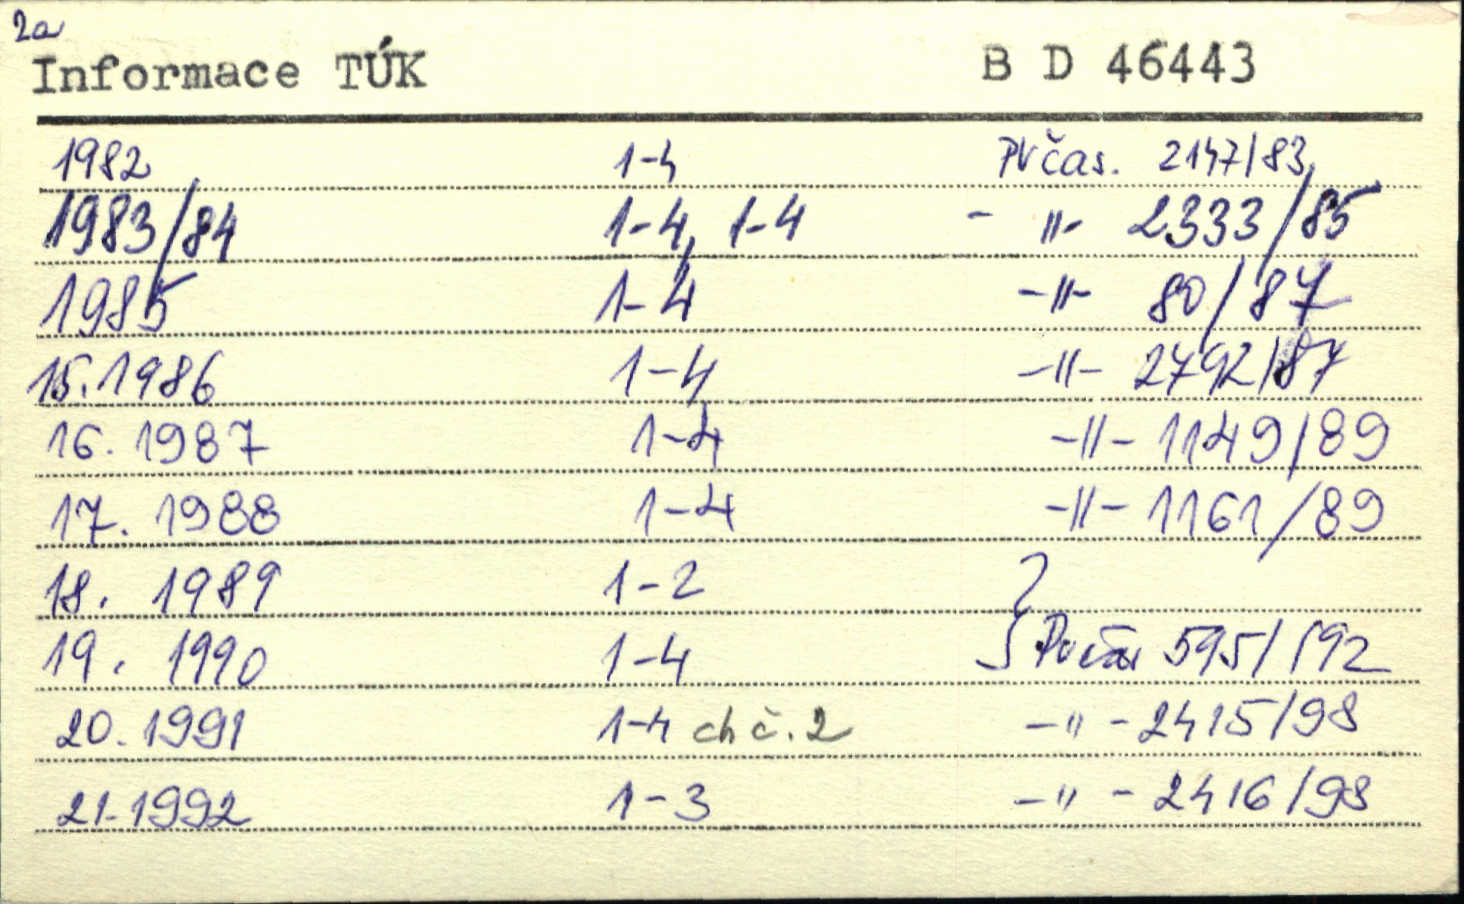 2a
Informace TÚK B D 46443
1982 1-4 PVčas. 2147/83
1983/84 1-4, 1-4 - " - 2333/85
1985 1-4 -"- 80/87
15. 1986 1-4 -"- 2792/87
16. 1987 1-4 -"- 1149/89
17. 1988 1-4 -"- 1161/89
18. 1989 1-2 }
19. 1990 1-4 PVčas 595/92
20. 1991 1-4 ch č. 2 -"- 2415/98
21. 1992 1-3 -"- 2416/98